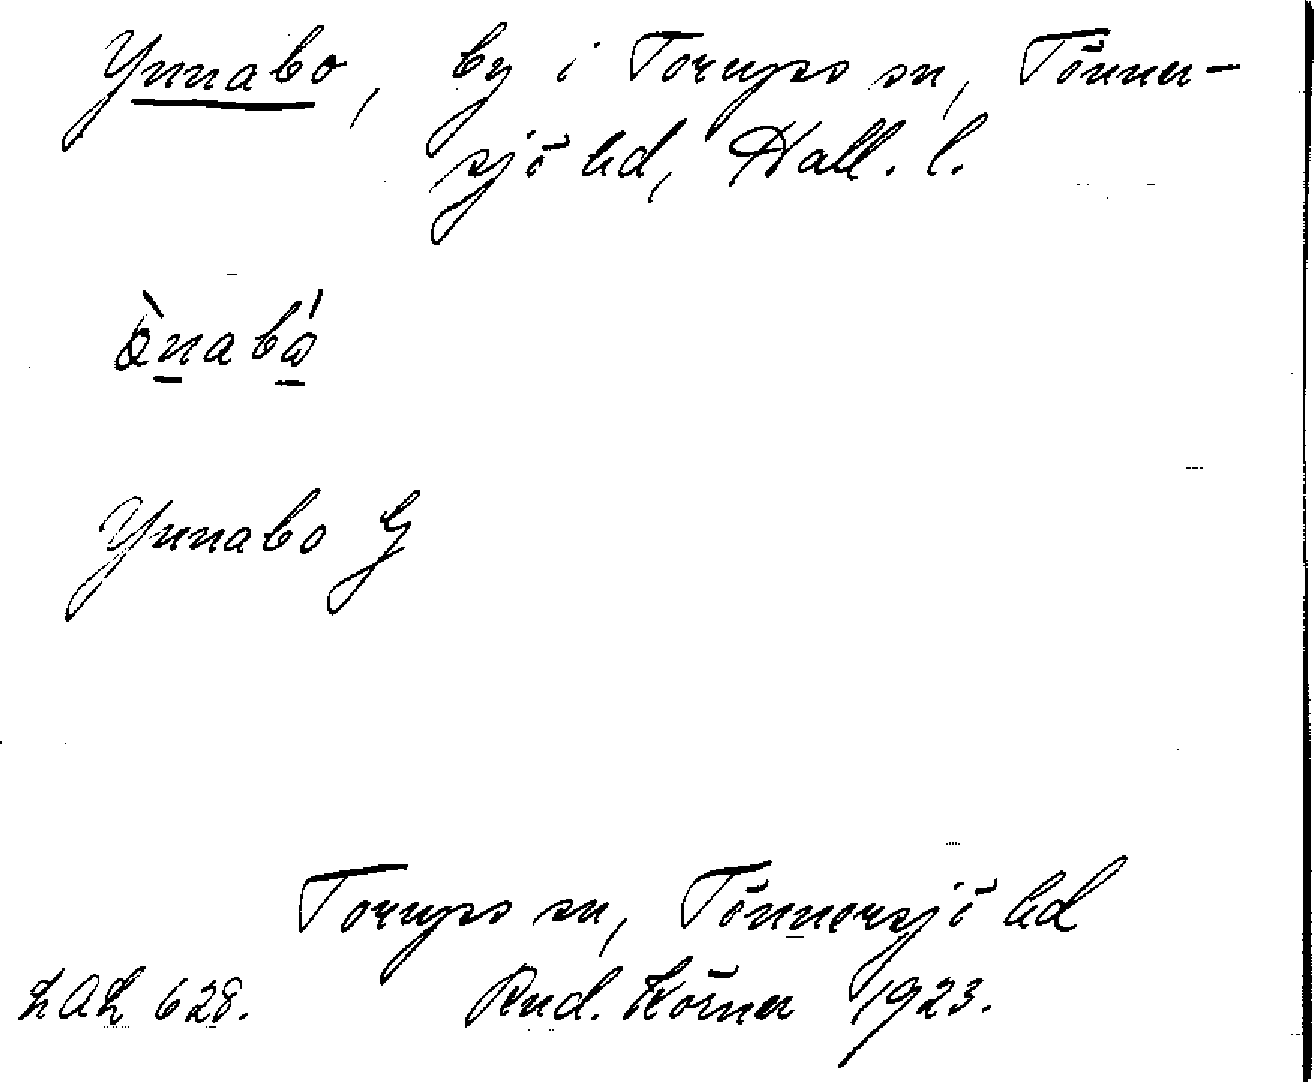 Ynnabo, by i Torups sn, Tönner-
sjö hd, Hall. l.
Ynnabo G
Torups sn, Tönnersjö hd
LAL 628. Rud. Körner 1923.